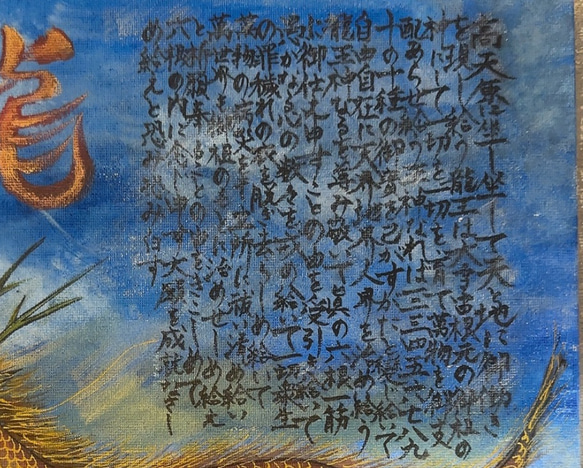 高天原に坐し坐して天と地に御働き
を現し給う龍王は大宇宙根元の御祖の
にして一切を産み一切を育て萬物を御支
配あらせ給う王神なれば一二三四五六七八九
十の十種の御寶を己がすがたと変じ給いて
自由自在に天界地界人界を治め給う
龍王神なるを尊み敬いて眞の六根一筋
に御仕え申すことの由を受引き給いて
愚かなる心の数々を戒め給いて一切衆生
の罪穢れの衣を脱ぎ去らしめ給いて
萬物の病災をも立所に祓い清め給い
萬世界も御祖のもとに治めせしめ給え
と祈願奉ることの由をきこしめして
六根の内に念じ申す大願を成就なさし
め給えと恐み恐み白す
龍